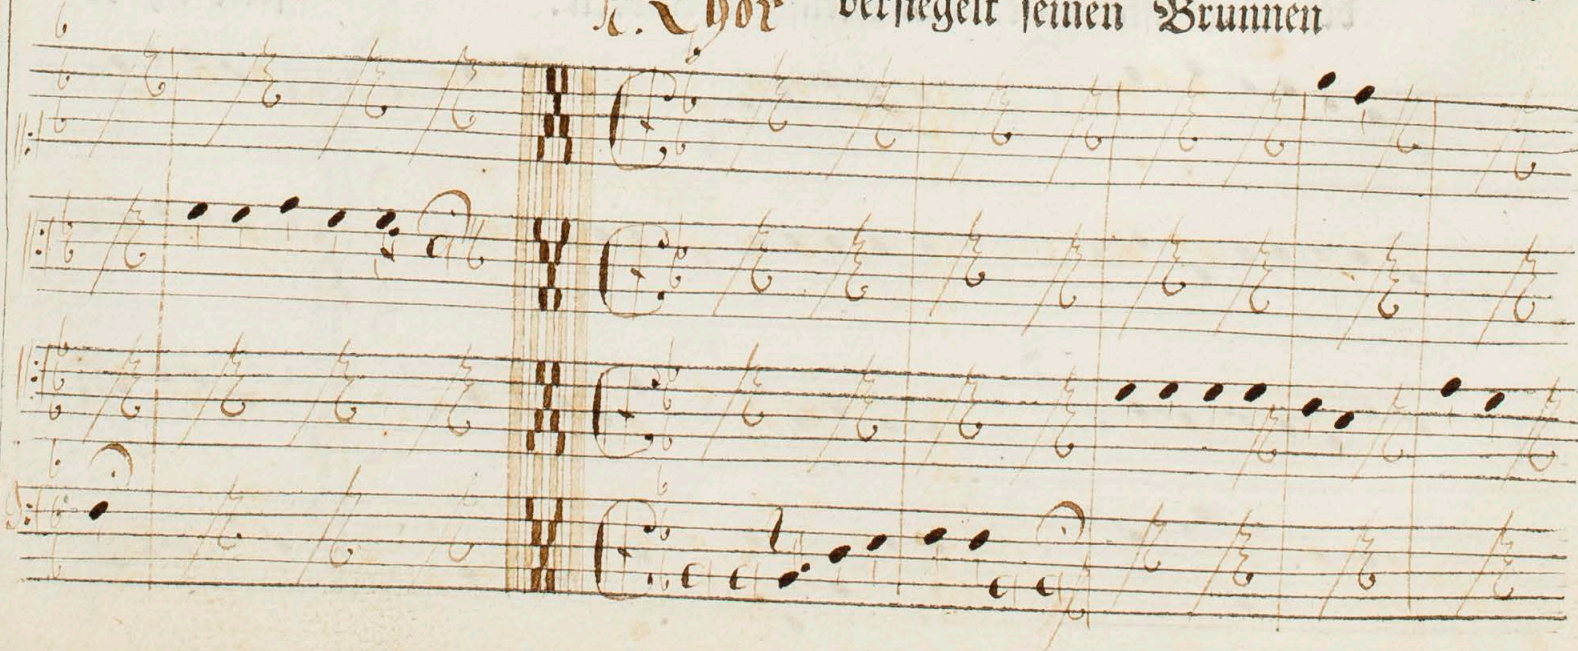 Chor versiegelt seinen Brunnen